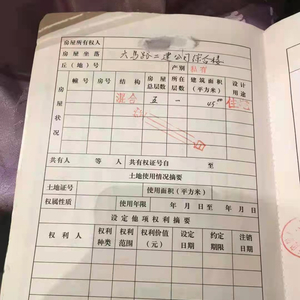 房屋所有权人
房屋坐落 六马路二建公司综合楼
丘（地）号 产别 私有
幢号 房号 结构 房屋总层数 所在层数 建筑面积（平方米） 设计用途
房屋状况 混合 五 一 45 住宅
共有人 等 人 共有权证号自 至
土地使用情况摘要
土地证号 使用面积（平方米）
权属性质 使用年限 年 月 日至 年 月 日
设定他项权利摘要
权利人 权利种类 权利范围 权利价值（元） 设定日期 约定期限 注销日期